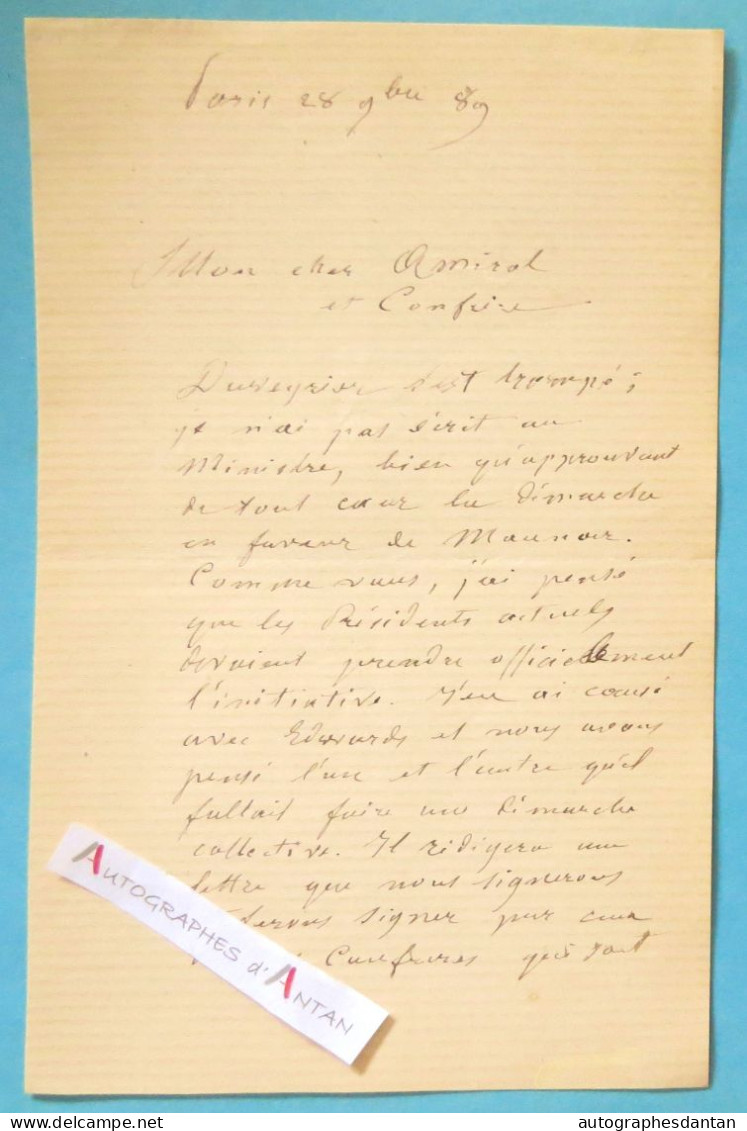 Paris 28 9bre 89
Mon cher Amiral
et Confrère
Duveyrier s'est trompé ;
je n'ai pas écrit au
Ministre, bien qu'approuvant
de tout cœur la démarche
en faveur de Maunoir.
Comme vous, j'ai pensé
que les Présidents actuels
devaient prendre officiellement
l'initiative. J'en ai causé
avec Edwards et nous avons
pensé l'un et l'autre qu'il
fallait faire une démarche
collective. Il rédigera une
lettre que nous signerons
signer par ceux
Confrères qui sont
AUTOGRAPHES d'ANTAN
delcampe.net
autographesdantan